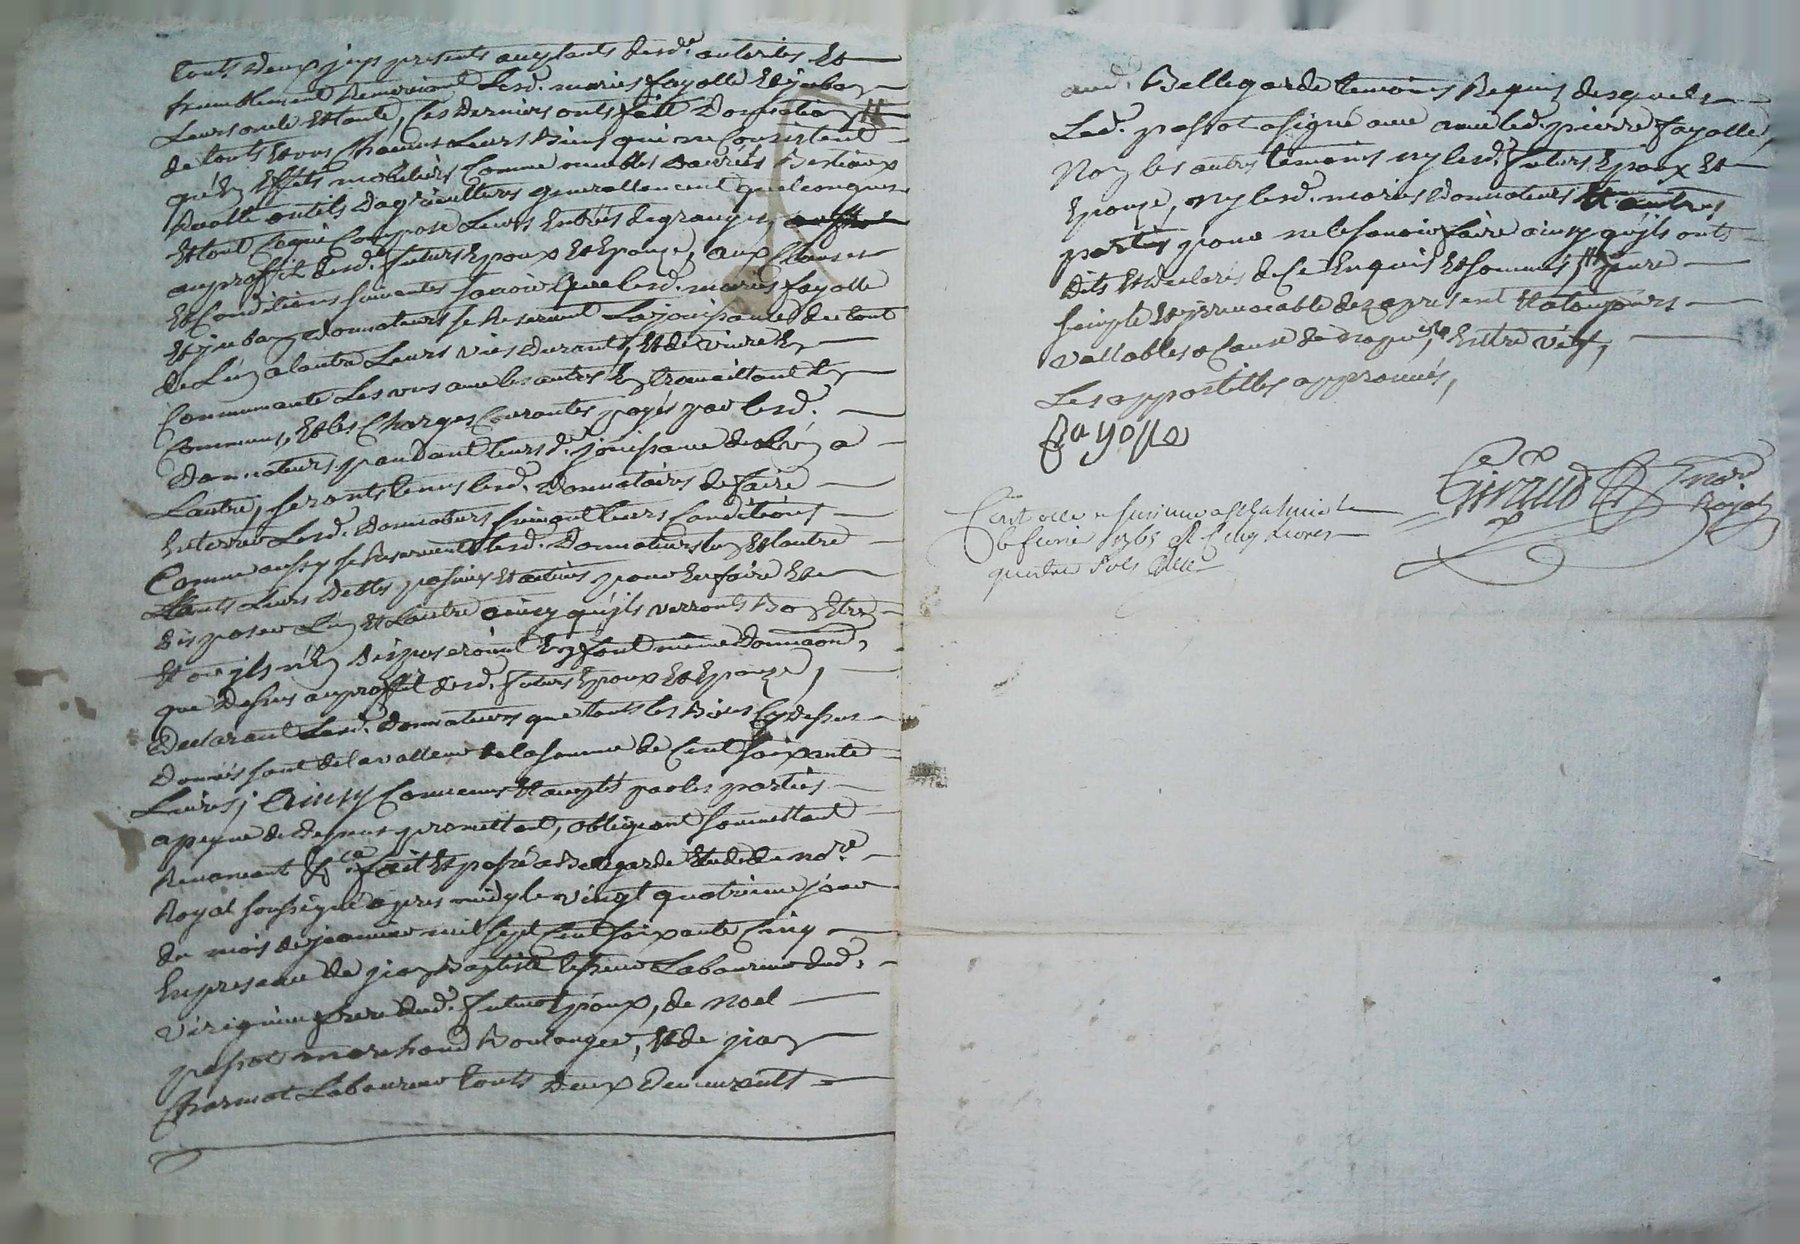 touts deux jcys presents aceptants desd. auterités et
humblement remerciant lesd. mariés fayolle et jeubay
leurs oncle et tante, ces derniers onts fait donnation
de touts et uns chacuns leurs biens qui ne consistent
qu'en effets mobiliers comme meubles danrrés bestiaux
outils d'agriculture generallement quelconques
et tout ce qui compose leurs entrés de granges,
au proffit desd. futurs epoux et epouze, aux clauses
et conditions suivantes savoir que lesd. mariés fayolle
et jeubay donnateurs se reservent la jouissance du tout
de l'un a l'autre leurs vies durant, et de vivre en
communauté les uns avec les autres en travaillant en
commun, et les charges courantes payés par lesd.
donnateurs pendant leursd. jouissance de l'un a
l'autre, seronts tenus lesd. donnataires de faire
enterrer lesd. donnateurs suivant leurs conditions
comme aussy se reservent lesd. donnateurs l'un et l'autre
touts leurs debtes passives et actives pour en faire et
disposer l'un et l'autre ainsy qu'ils verronts bon etre
et ou ils n'en disposeroint en font même donnaon,
que dessus au proffit desd. futurs epoux et epouze,
declarant lesd. donnateurs que touts les biens cy dessus
donnés sont de la valleur de la somme de cent soixante
livres; ainsy convenu et acepté par les parties
a peyne de depens promettant, obligeant soumettant
renonceant &ca fait et passé a Bellegarde etude de nore.
royal soussigné apres midy le vingt quatrieme jour
du mois de janvier mil sept cent soixante cinq
en presence de jean Baptiste laboureur dud.
virignieu frere dud. futur epoux, de noel
passot marchand boulanger, et de jean
charmat laboureur touts deux demeurants
aud. Bellegarde temoins requis desquels
led. passot a signé avec led. pierre fayolle,
non les autres temoins ny lesd. futurs epoux et
epouze, ny lesd. mariés donnateurs et autres
parties pour ne le sçavoir faire ainsy qu'ils onts
dits et declarés de ce enquis et sommés pure
simple et irrevocable dez a present et a toujours
vallable a cause de nopces, entre vifs,
les appostilles approuvés,
fayolle
Giraud nore.
Royal
Controllé
fevrier 1765 R cinq livres
quatre sols